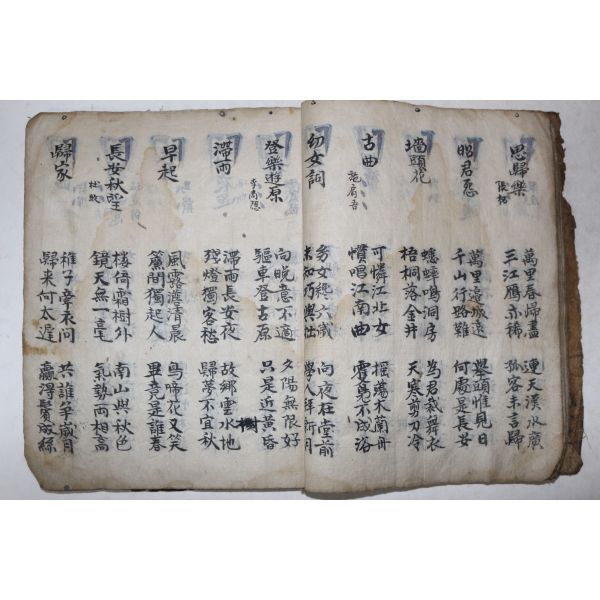 思歸樂
張祜
萬里春歸盡
三江鴈亦稀
連天漢水廣
孤客未言歸
昭君怨
萬里邊城遠
千山行路難
舉頭惟見日
何處是長安
墻頭花
蟋蟀鳴洞房
梧桐落金井
為君裁舞衣
天寒剪刀冷
古曲
施肩吾
可憐江北女
慣唱江南曲
搖蕩木蘭舟
雙鳧不成浴
幼女詞
幼女纔六歲
未知巧與拙
向夜在堂前
學人拜新月
登樂遊原
李商隱
向晚意不適
驅車登古原
夕陽無限好
只是近黃昏
滯雨
滯雨長安夜
殘燈獨客愁
故鄉雲水地
歸夢不宜秋
樹
早起
風露澹清晨
簾間獨起人
鳥啼花又笑
畢竟是誰春
長安秋望
杜牧
樓倚霜樹外
鏡天無一毫
南山與秋色
氣勢兩相高
歸家
稚子牽衣問
歸来何太遲
共誰爭歲月
贏得鬢成絲